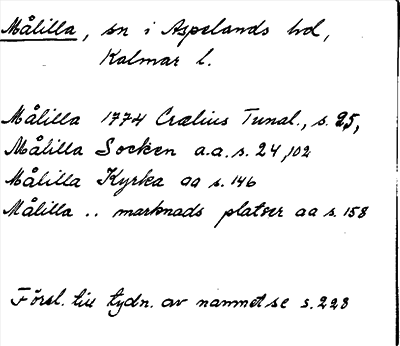 Målilla, sn i Aspelands hd,
Kalmar l.
Målilla 1774 Crælius Tunal., s. 25,
Målilla Socken a.a. s. 24, 102
Målilla Kyrka aa s. 146
Målilla .. marknads platser aa s. 158
Försl. till tydn. av namnet se s. 228